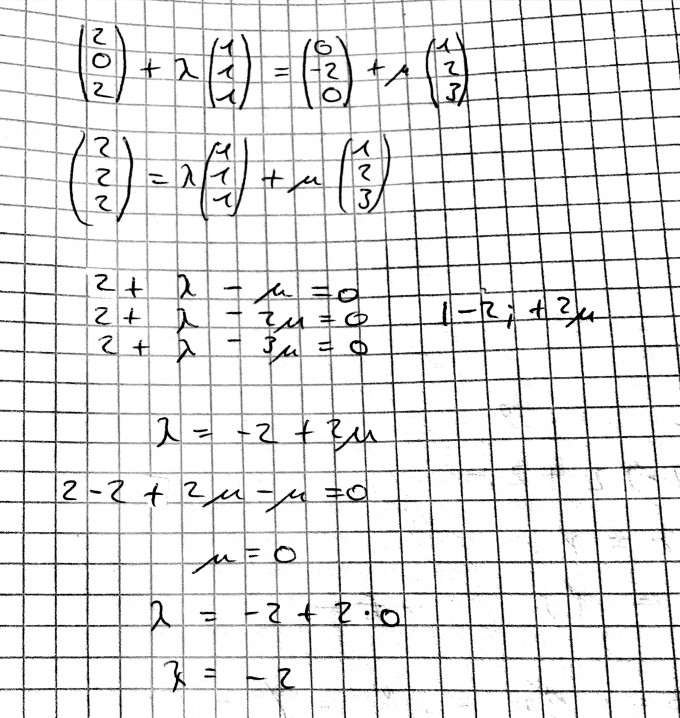 (2 0 2) + λ (1 1 1) = (0 -2 0) + μ (1 2 3)
(2 2 2) = λ (1 1 1) + μ (1 2 3)
2 + λ - μ = 0
2 + λ - 2μ = 0 | -2; + 2μ
2 + λ - 3μ = 0
λ = -2 + 2μ
2 - 2 + 2μ - μ = 0
μ = 0
λ = -2 + 2 · 0
λ = -2